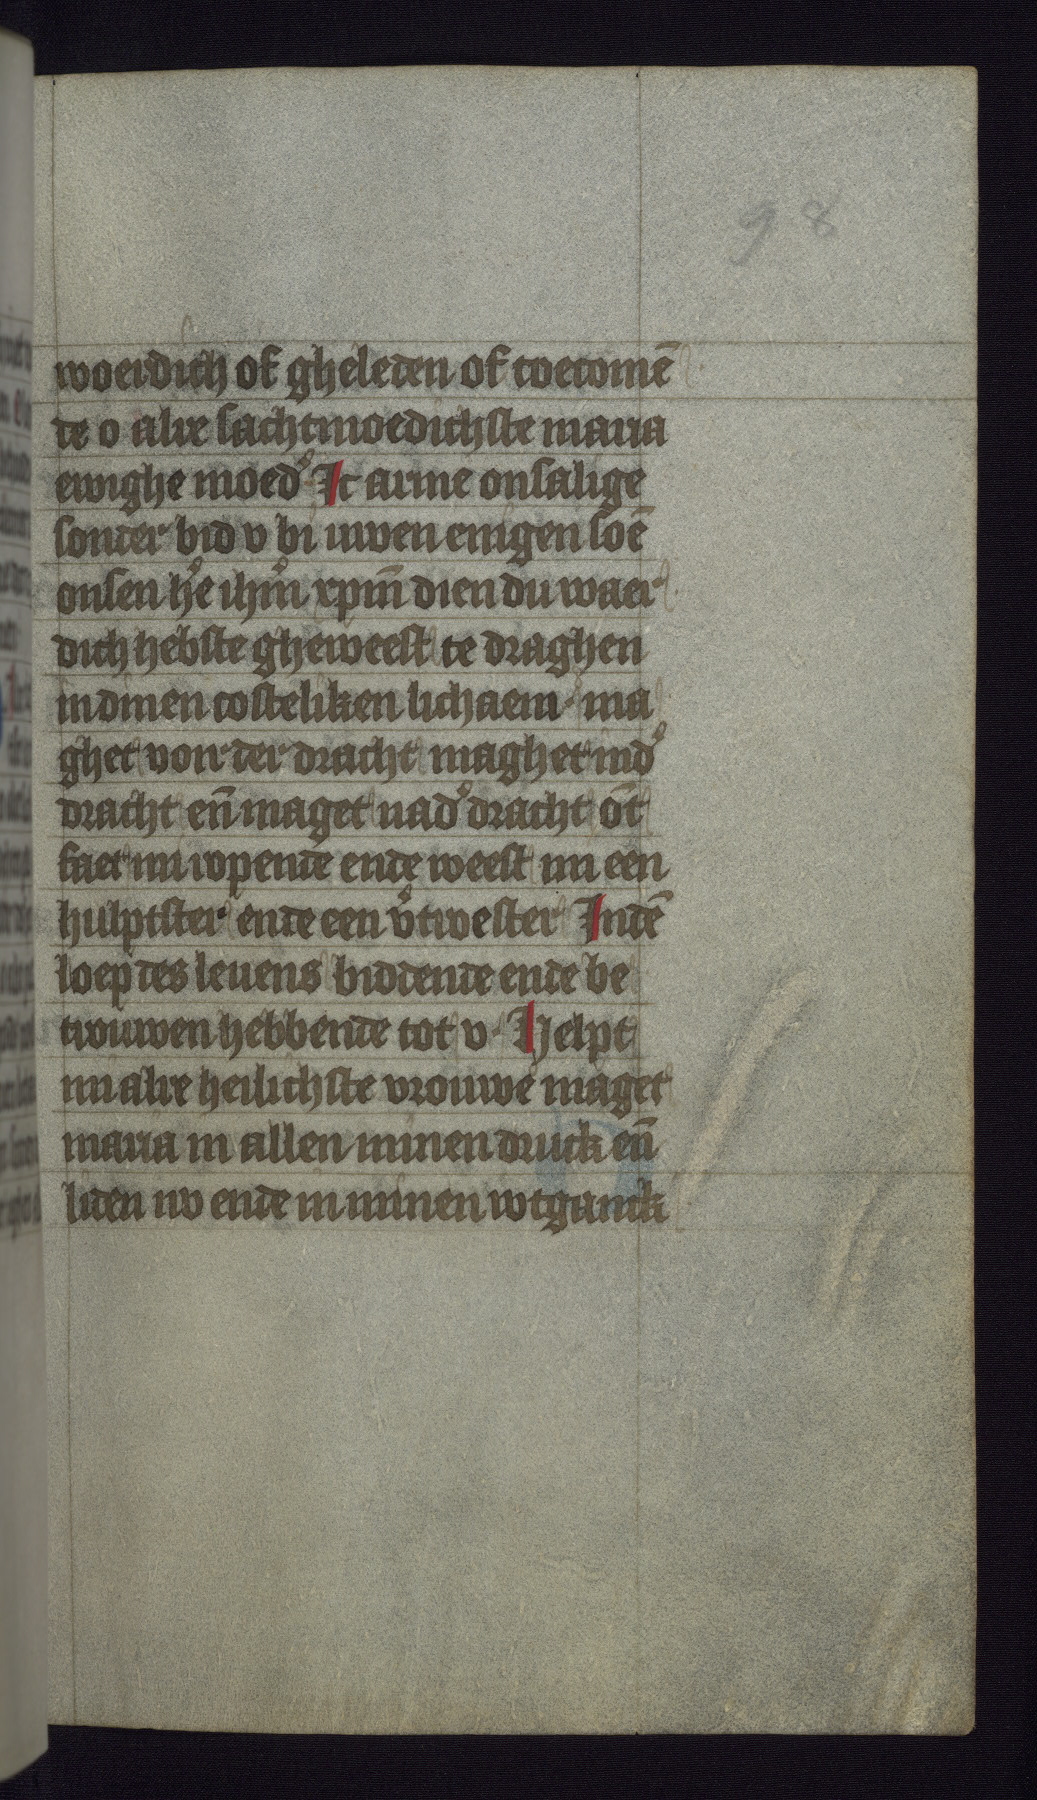 98
woerdich of gheleden of toecomē
de o alre sachtmoedichste maria
ewighe moed᷒ Ic arme onsalige
sonder bid v bi uwen enigen soē
onsen h᷒e ihm̄ xpm̄ dien du waer
dich hebste gheweest te draghen
in dinen costeliken lichaem · ma
ghet vor der dracht maghet in d᷒
dracht en̄ maget na d᷒ dracht ōt
faet mi wpende ende weest mi een
hulpster ende een v᷒troester Indē
loep des leuens biddende ende be
trouwen hebbende tot v · Helpt
mi alre heilichste vrouwe maget
maria in allen minen druck en̄
liden nv ende in minen wtganck